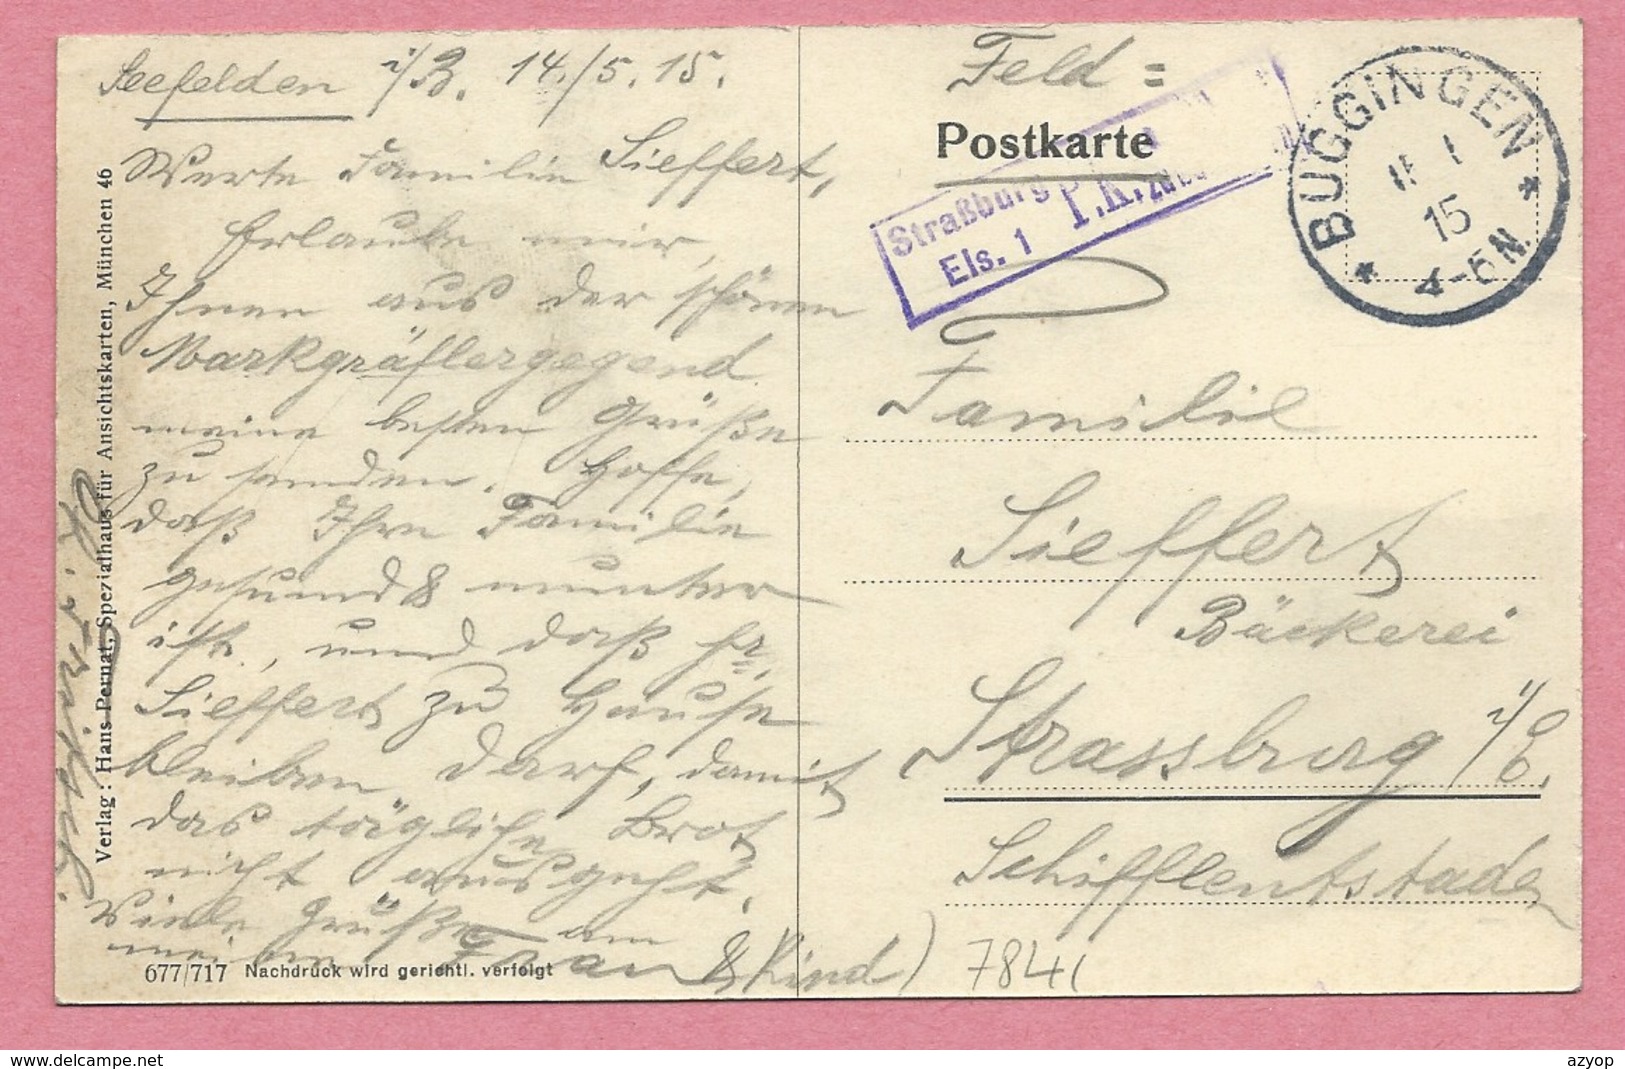 Seefelden i/B. 14./5.15.
Werte Familie Sieffert,
Erlaube mir,
Ihnen aus der schönen
Markgräflergegend
meine besten Grüße
zu senden. Hoffe,
daß Ihre Familie
gesund & munter
ist, und daß Hr.
Sieffert zu Hause
bleiben darf, damit
das tägliche Brot
nicht ausgeht.
Viele Grüße an
meine Frau & Kind)
Verlag: Hans Pernat, Spezialhaus für Ansichtskarten, München 46
677/717 Nachdruck wird gerichtl. verfolgt
Feld =
Postkarte
Straßburg P.K.
Els. 1
BUGGINGEN
15
4-5N.
Familie
Sieffert
Bäckerei
Strassburg i/E.
Schifflentstaden
7841
delcampe.net
azyop